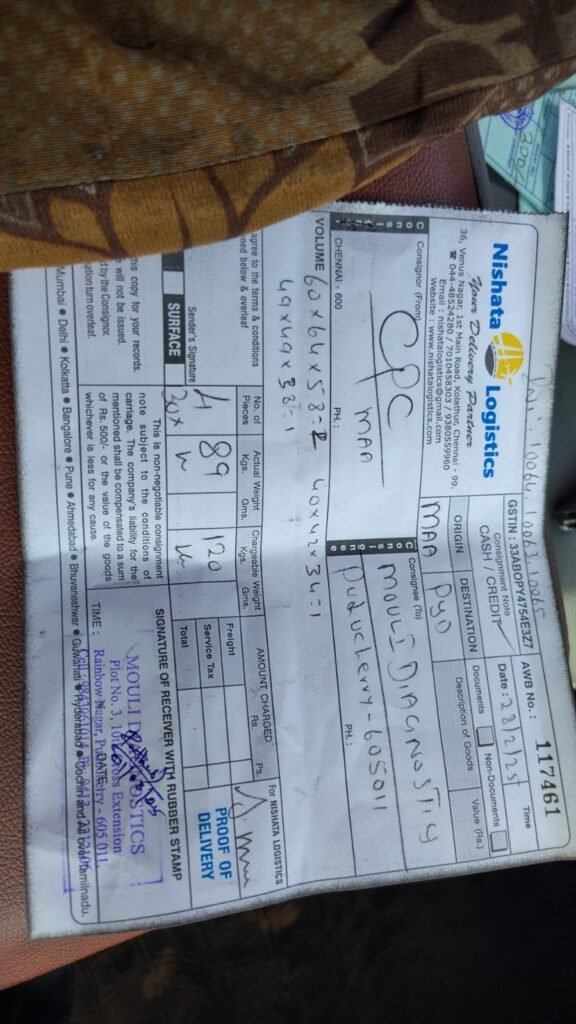 Nishata Logistics
Your Delivery Partner
36, Venus Nagar, 1st Main Road, Kolathur, Chennai - 99.
☎ 044-48524280 / 7010458303 / 9380559960
Email : nishatalogistics@gmail.com
Website : www.nishatalogistics.com
10064, 10063, 10065
GSTIN : 33ABOPY4754E3Z7
Consignment Note
CASH / CREDIT
AWB No.: 117461
Date : 28/2/25
Time
ORIGIN
MAA
DESTINATION
PYD
Documents
Non-Documents
Description of Goods
Value (Rs.)
Consignor
Consignor (From)
CPC
MAA
CHENNAI - 600
PH.:
Consignee
Consignee (To)
MOULI DIAGNOSTIG
Puducherry - 605011
PH.:
VOLUME 60x64x58=2 40x42x34=1
49x49x38=1
agree to the terms & conditions
ned below & overleaf
Sender's Signature
No. of Pieces
4
Actual Weight
Kgs. Gms.
89
Chargeable Weight
Kgs. Gms.
120
AMOUNT CHARGED
Rs. Ps.
Freight
Service Tax
Total
For NISHATA LOGISTICS
PROOF OF DELIVERY
SURFACE
his copy for your records.
will not be issued.
d by the Consignor.
ation turn overleaf.
This is non-negotiable consignment
note subject to the conditions of
carriage. The company's liability for the
mentioned shall be compensated to a sum
of Rs. 500/- or the value of the goods
whichever is less for any cause.
SIGNATURE OF RECEIVER WITH RUBBER STAMP
TIME :
DATE
MOULI DIAGNOSTICS
Plot No. 3, 10th Cross Extension
Rainbow Nagar, Puducherry - 605 011.
Mumbai ● Delhi ● Kolkatta ● Bangalore ● Pune ● Ahmedabad ● Bhuvaneshwar ● Guwahati ● Hyderabad ● Cochin and All over Tamilnadu.